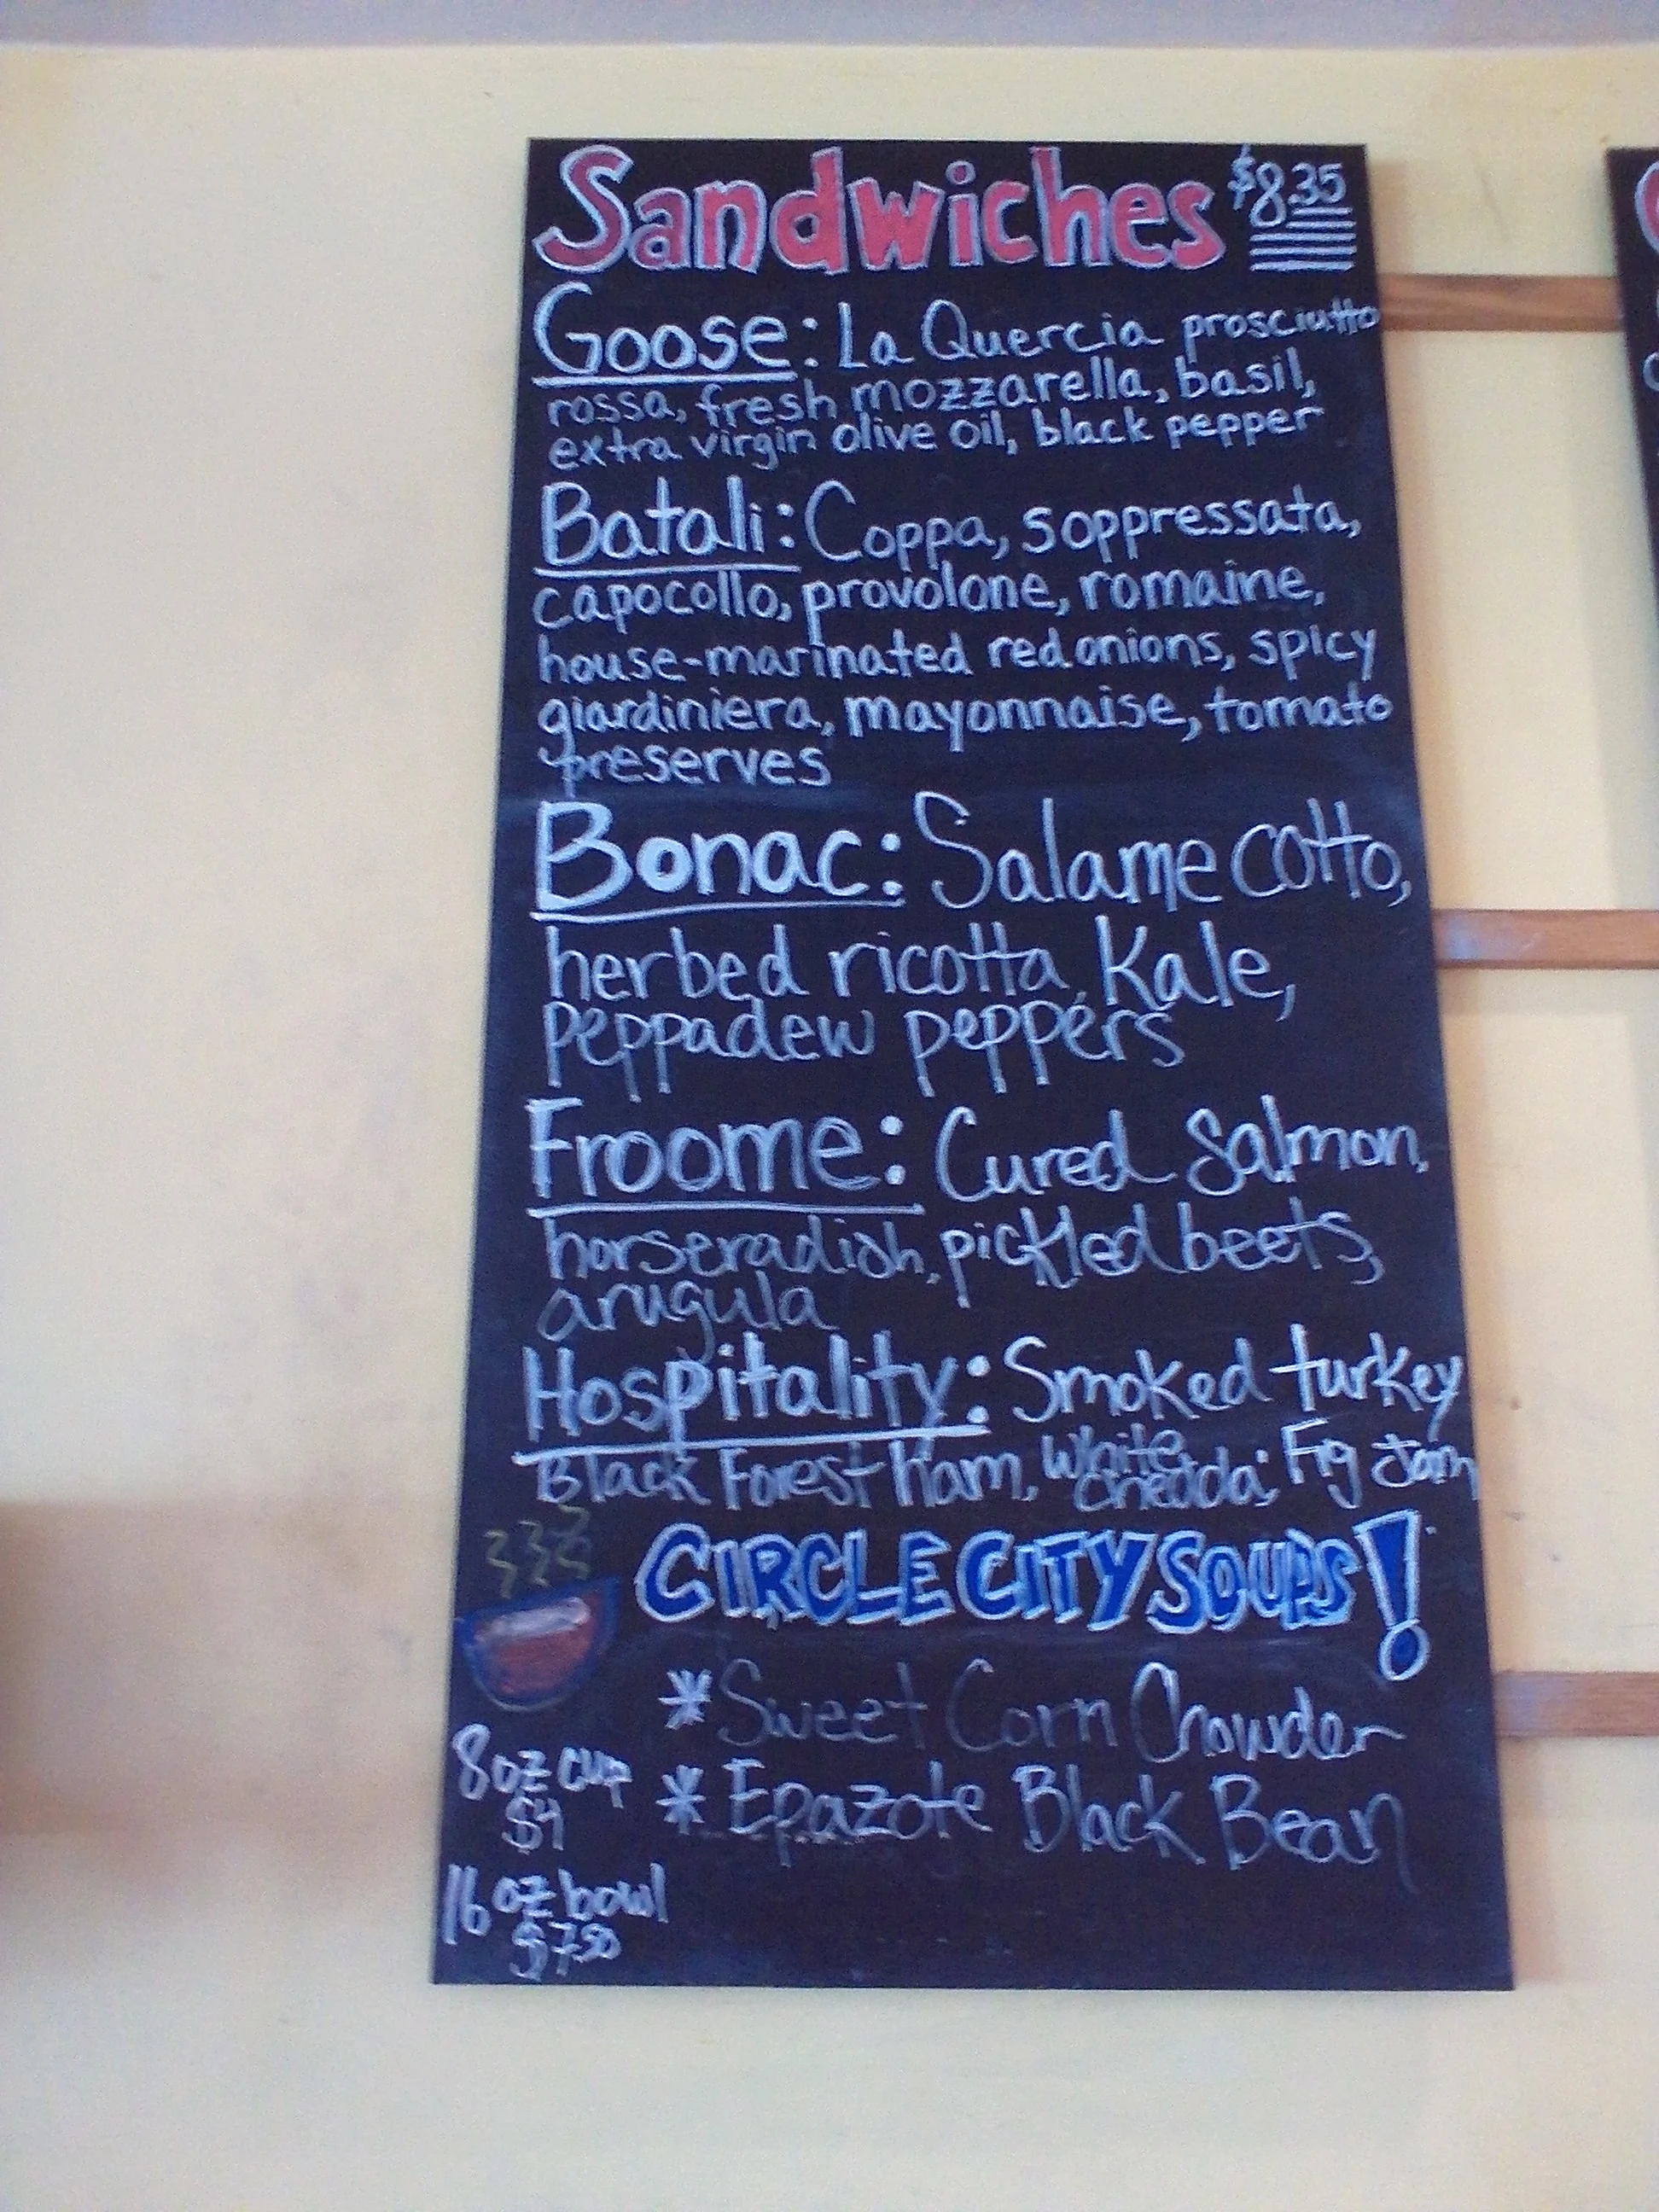 Sandwiches $8.35
Goose: La Quercia prosciutto
rossa, fresh mozzarella, basil,
extra virgin olive oil, black pepper
Batali: Coppa, soppressata,
capocollo, provolone, romaine,
house-marinated red onions, spicy
giardiniera, mayonnaise, tomato
preserves
Bonac: Salame cotto,
herbed ricotta, Kale,
peppadew peppers
Froome: Cured Salmon,
horseradish, pickled beets,
arugula
Hospitality: Smoked turkey
Black Forest Ham, White Fig Jam
CIRCLE CITY SOUPS!
*Sweet Corn Chowder
*Epazote Black Bean
8oz cup
$4
16 oz bowl
$7.50